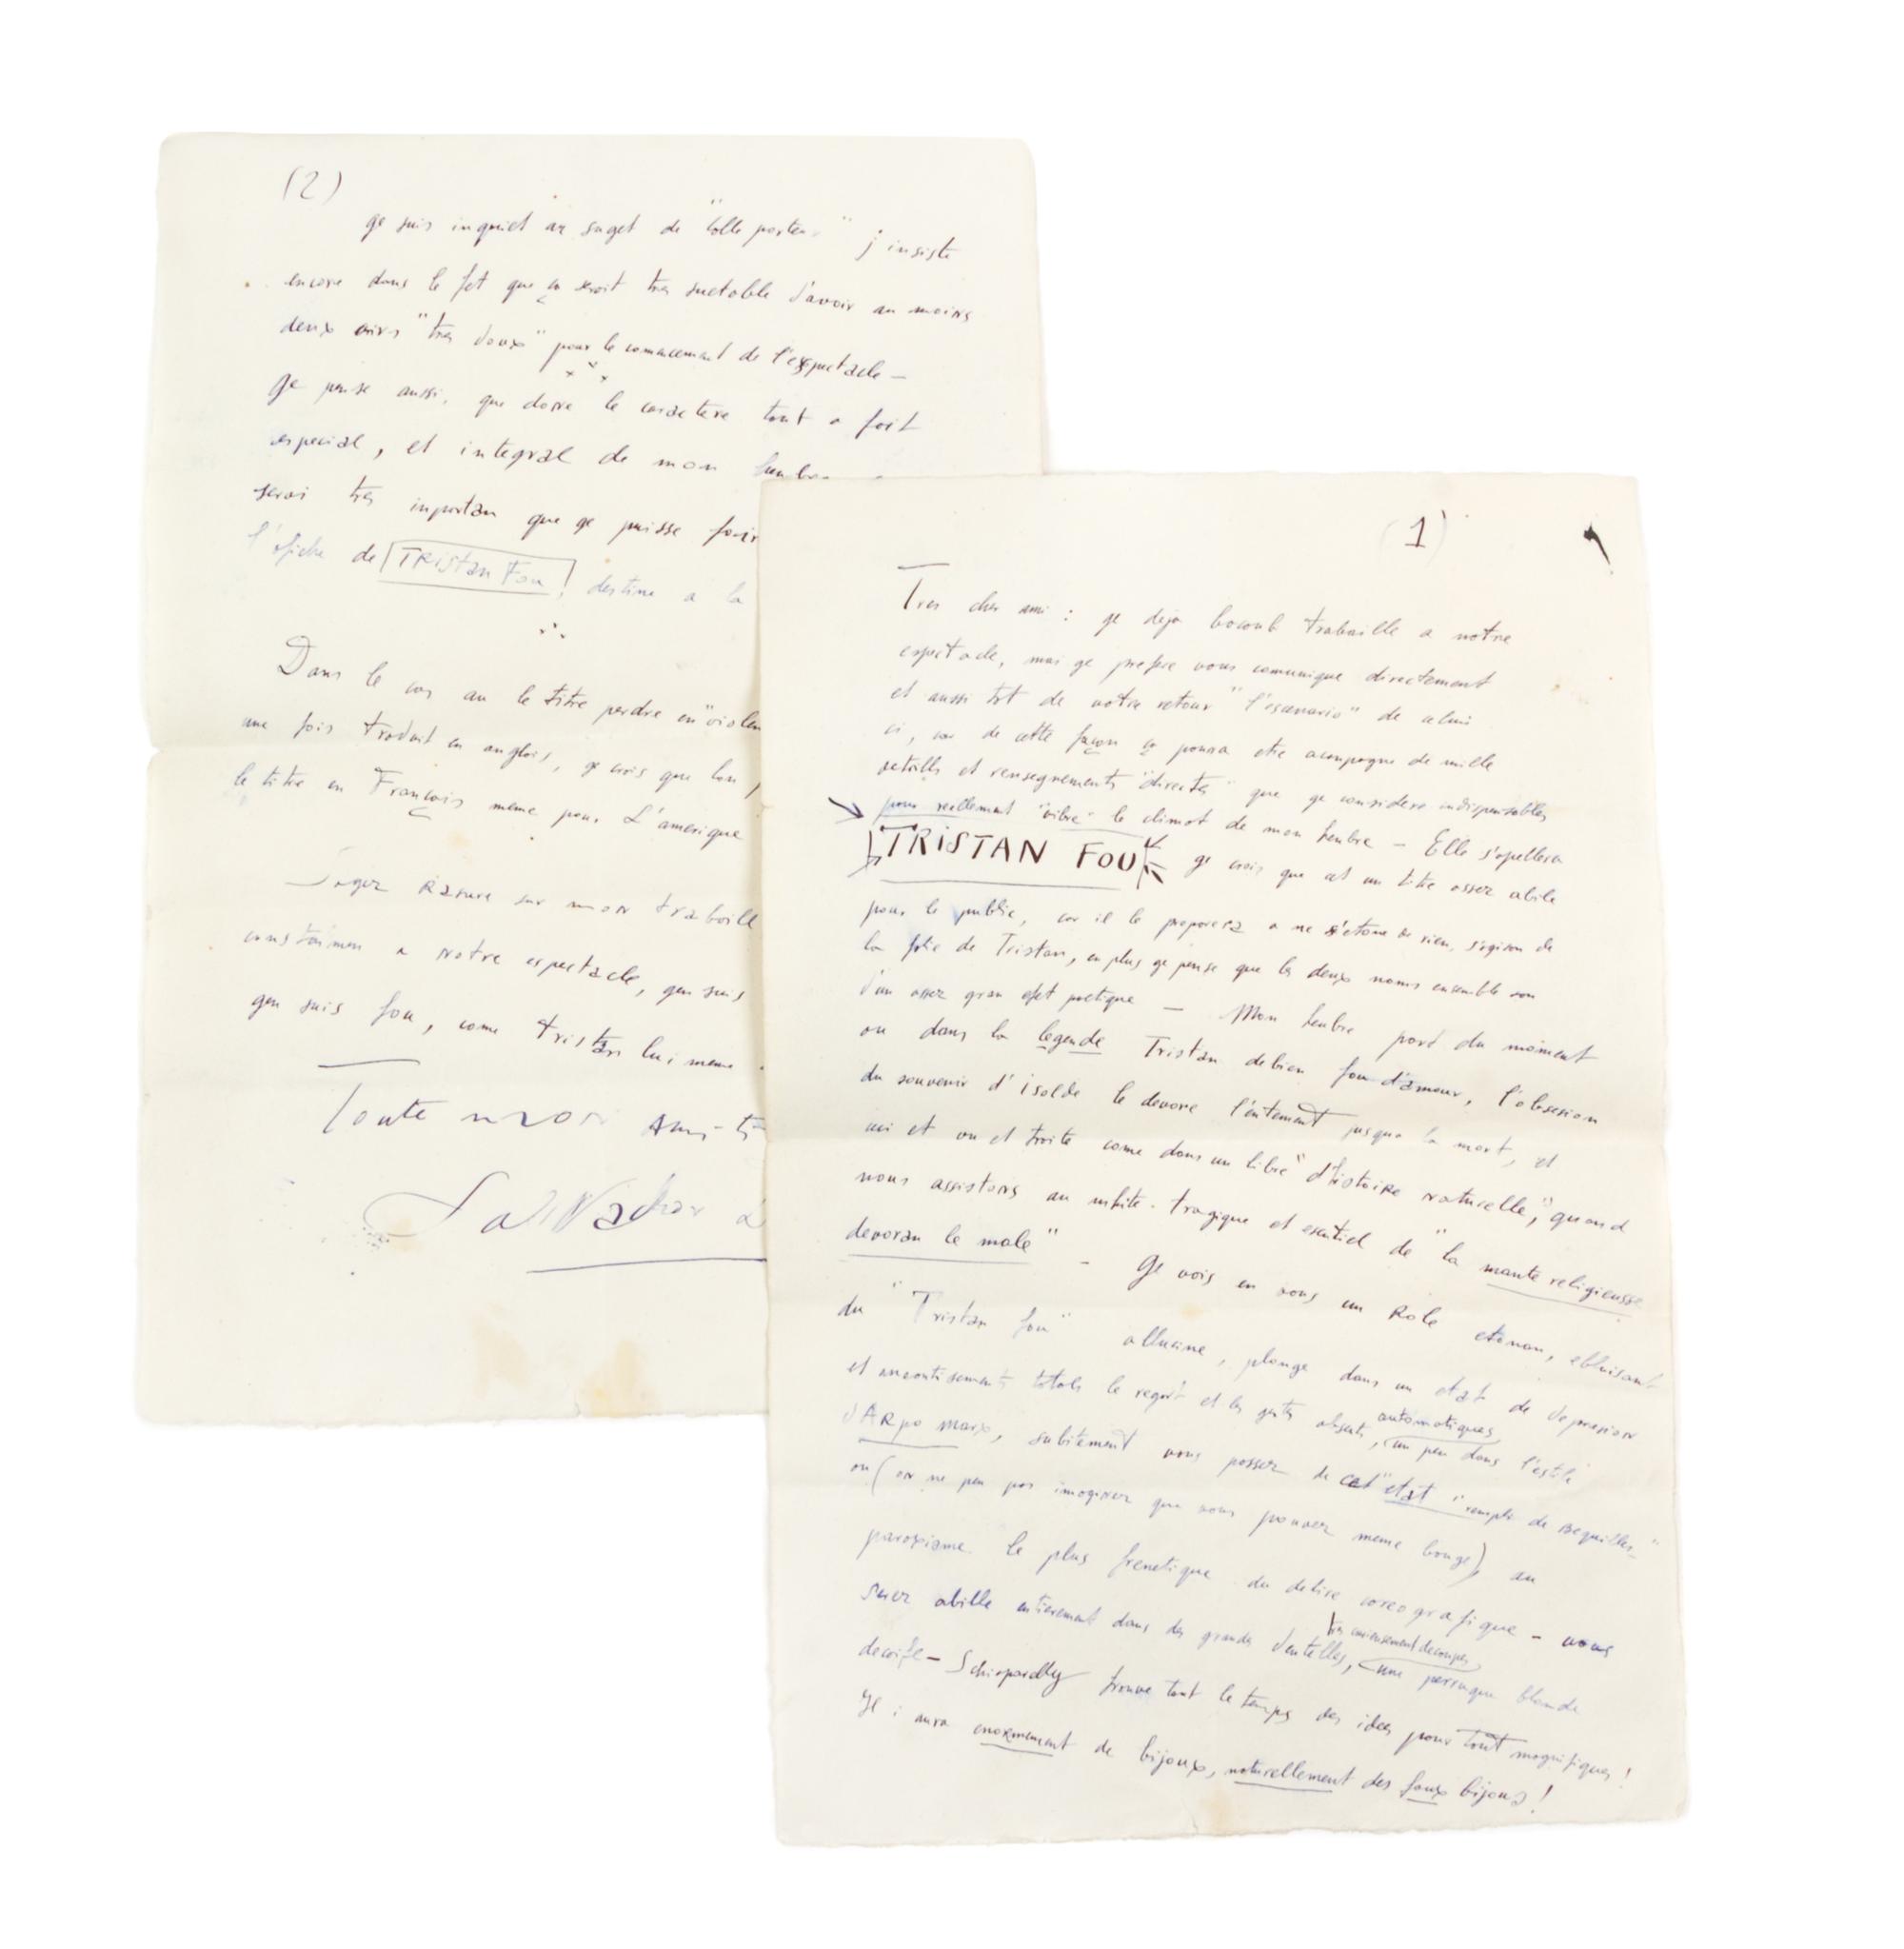 (1)
Tres cher ami : ge deja bocoub trabaille a notre
espectacle, mai ge prefere vous comunique directement
et aussi tot de votre retour "l'escenario" de celui
ci, car de cette façon ça pourra etre acompagne de mille
details et rensegnements "directes" que ge considere indispensables
pour reellement "vibre" le climat de mon heubre – Elle s'apellera
TRISTAN FOU ge crois que cet un titre assez abile
pour le public, car il le preparera a ne s'etone de rien, s'agison de
la folie de Tristan, en plus ge pense que les deux noms ensemble son
d'un assez gran efet poetique — Mon heubre pard du moment
ou dans la legende Tristan debien fou d'amour, l'obsesion
du souvenir d'isolde le devore l'entement jusqua la mort, et
ici et ou et trete come dans un libre "d'histoire naturelle", quand
nous assistons au mhite tragique et esentiel de "la mante religieusse
devoran le male" – Ge vois en vous un Role etonan, ebluisant
du "Tristan fou" allucine, plonge dans un etat de depresion
et aneantisements totals le regart et les gestes absents, automatiques, un peu dans l'estile
d'ARpo marx, subitement vous passez de cet "etat remplt de Bequilles"
ou (on ne peu pas imaginer que vous pouvez meme bouge) au
paroxisme le plus frenetique du delire coreografique – vous
serez abille entierement dans des grandes dentelles, tres curieusement decoupes, une perruque blonde
decoife – Schiaparelly trouve tout le temps des idees pour tout magnifiques!
Il i aura enormement de bijoux, naturellement des faux bijoux!
(2)
ge suis inquiet au suget de "Colle porter" j'insiste
encore dans le fet que ça seroit tres suetable d'avoir au moins
deux airs "tres doux" pour le comencement de l'espectacle –
Ge pense aussi, que done le caractere tout a fait
especial, et integral de mon heubre
serai tres inportan que ge puisse faire
l'afiche de TRistan Fou, destine a la
Dans le cas au le titre perdre en "violen
une fois traduit en anglais, ge crois que lon
le titre en Français meme pour L'amerique
Soyez Rasure sur mon traboill
constaimen a notre espectacle, gen suis
gen suis fou, come tristan lui meme.
Toute mon Amiti
Salvador D